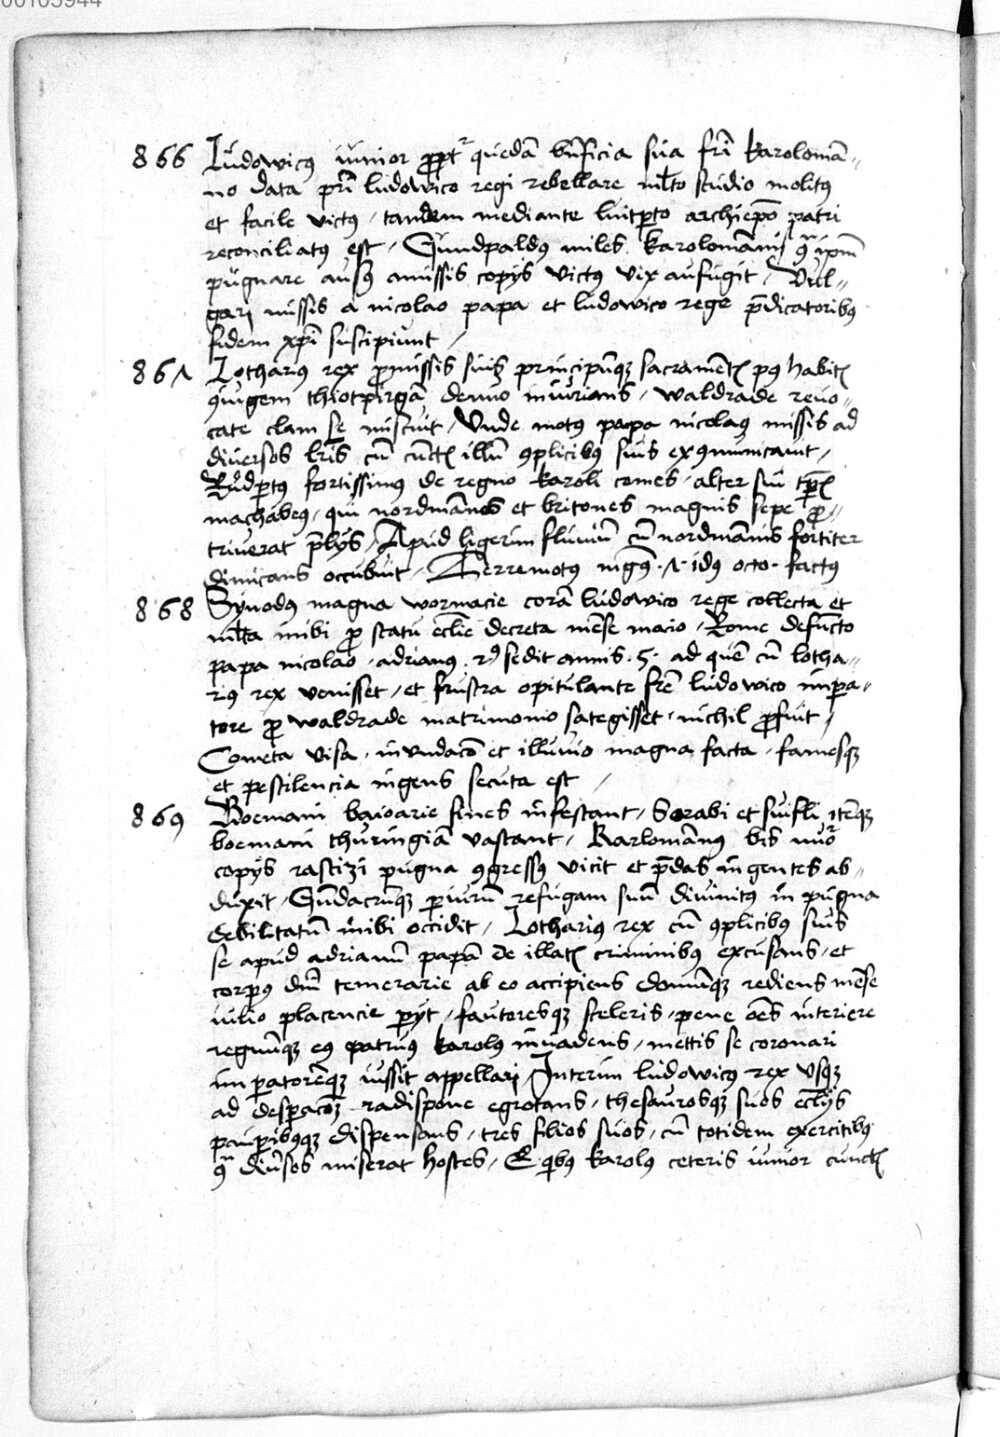 00103944
866 Ludowicus iunior propter quedā bn̄ficia sua fri Karolomā-
no data pr̄i ludowico regi rebellare mlto studio molitus
et facile victus, tandem mediante luitperto archiepō patri
reconciliatus est, Gundpaldus miles Karolomāni 9tra ipm̄
pugnare ausus amissis copijs victus vix aufugit, Vul-
gari missis a nicolao papa et ludowico rege p̄dicatoribus
fidem xp̄i suscipiunt,
867 Lotharius rex promissis suis principumque sacramētis post habitis
9iugem thiotpirgā denuo iniurians, waldrade reuo-
cate clam se miscuit, Unde motus papa nicolaus missis ad
diuersos lr̄is cū cunctis illū 9plicibus suis ex9municauit,
Rudpertus fortissimus de regno Karoli comes, alter sui tp̄is
machabeus, qui nordmānos et britones magnis sepe pro-
triuerat p̄lijs, Apud ligerim fluuiū cū nordmānis fortiter
dimicans occubuit, Terremotus magnus .7. idus octo. factus
868 Synodus magna wormacie corā ludowico rege collecta et
mlta inibi pro statu ecclie decreta mēse maio, Rome defuncto
papa nicolao, adrianus sedit annis .5. ad quē cū lotha-
rius rex venisset, et frustra opitulante frē ludowico impera-
tore pro waldrade matrimonio sategisset, nichil profuit,
Cometa visa, inundacō et illuuio magna facta, famesque
et pestilencia ingens secuta est,
869 Boemani baioarie fines infestant, Sorabi et suisli itēque
boemani thuringiā vastant, Karlomānus bis
copijs rastizi pugna 9gressus vicit et p̄das ingentes ab-
duxit, Gundacrumque periurū refugam suū diuinitus in pugna
debilitatum inibi occidit, Lotharius rex cū 9plicibus suis
se apud adrianū papā de illatis criminibus excusans, et
corpus dm̄ temerarie ab eo accipiens domumque rediens mēse
iulio placencie perijt, fautoresque sceleris, pene ōes interiere
regnumque eius patruus Karolus inuadens, mettis se coronari
imperatorēque iussit appellari, Interim ludowicus rex usque
ad desperacōem radispone egrotans, thesaurosque suos ecclijs
pauperibusque dispensans, tres filios suos, cū totidem exercitibus
9tra diuersos miserat hostes, E quibus Karolus ceteris iunior cunctis